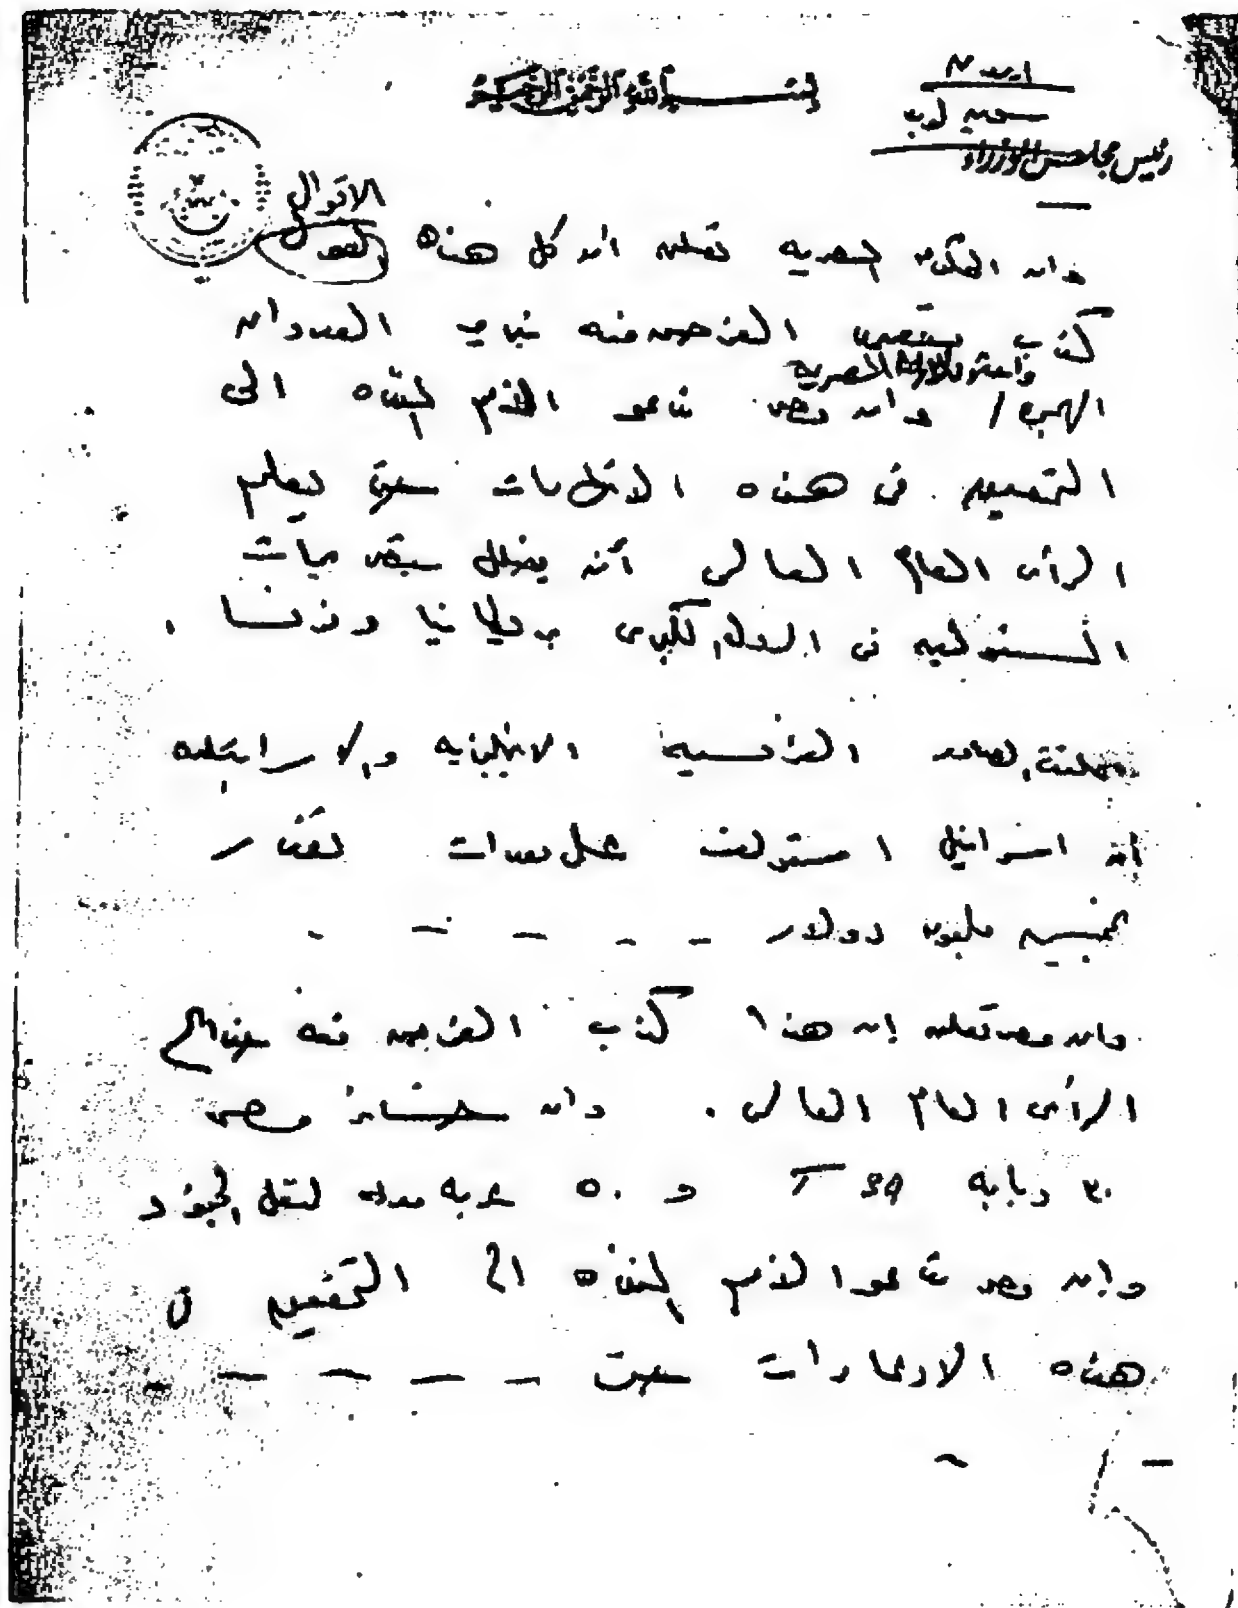 بسم الله الرحمن الرحيم
رئيس مجلس الوزراء
الاقوال
وان الحكومة المصريه تعلن ان كل هذه
كذب يقصد الغرض منه تبرير العدوان
المصريه
وان مصر تدعو الامم المتحده الى
التحقيق فى هذه الادعاءات سوف يعلم
الرأى العام العالمى أنه يضلل بتصريحات
المسئولين فى الدول الكبرى بريطانيا وفرنسا .
الفرنسيه الانجليزيه والاسرائيليه
أن اسرائيل استولت على معدات تقدر
بخمسين مليون دولار - - - - -
وان مصر تعلن ان هذا كذب الغرض منه
الرأى العام العالمى . وان خسائر مصر
٣٠ دبابه T 34 و ٥٠ عربه لنقل الجنود
وان مصر تدعو الامم المتحده الى التحقيق فى
هذه الادعاءات سوف - - - - -